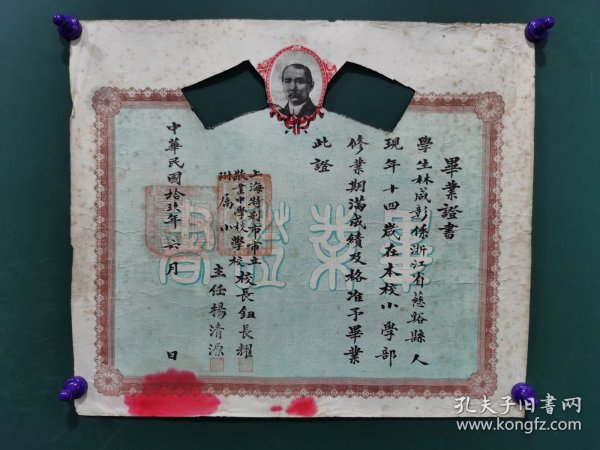 畢業證書
學生林咸彰係浙江省慈谿縣人
現年十四歲在本校小學部
修業期滿成績及格准予畢業
此證
上海特別市市立
敬業中學校
附屬小學校
校長鈕長耀
主任楊清源
中華民國拾玖年六月 日
畢業證書
孔夫子旧书网
www.kongfz.com